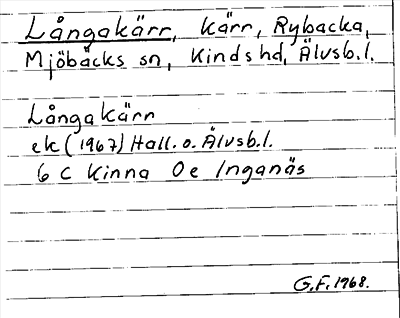 Långakärr, kärr, Rybacka,
Mjöbäcks sn, Kinds hd, Älvsb.l.
Långakärr
ek (1967) Hall. o. Älvsb.l.
6 C Kinna 0 e Inganäs
G.F. 1968.